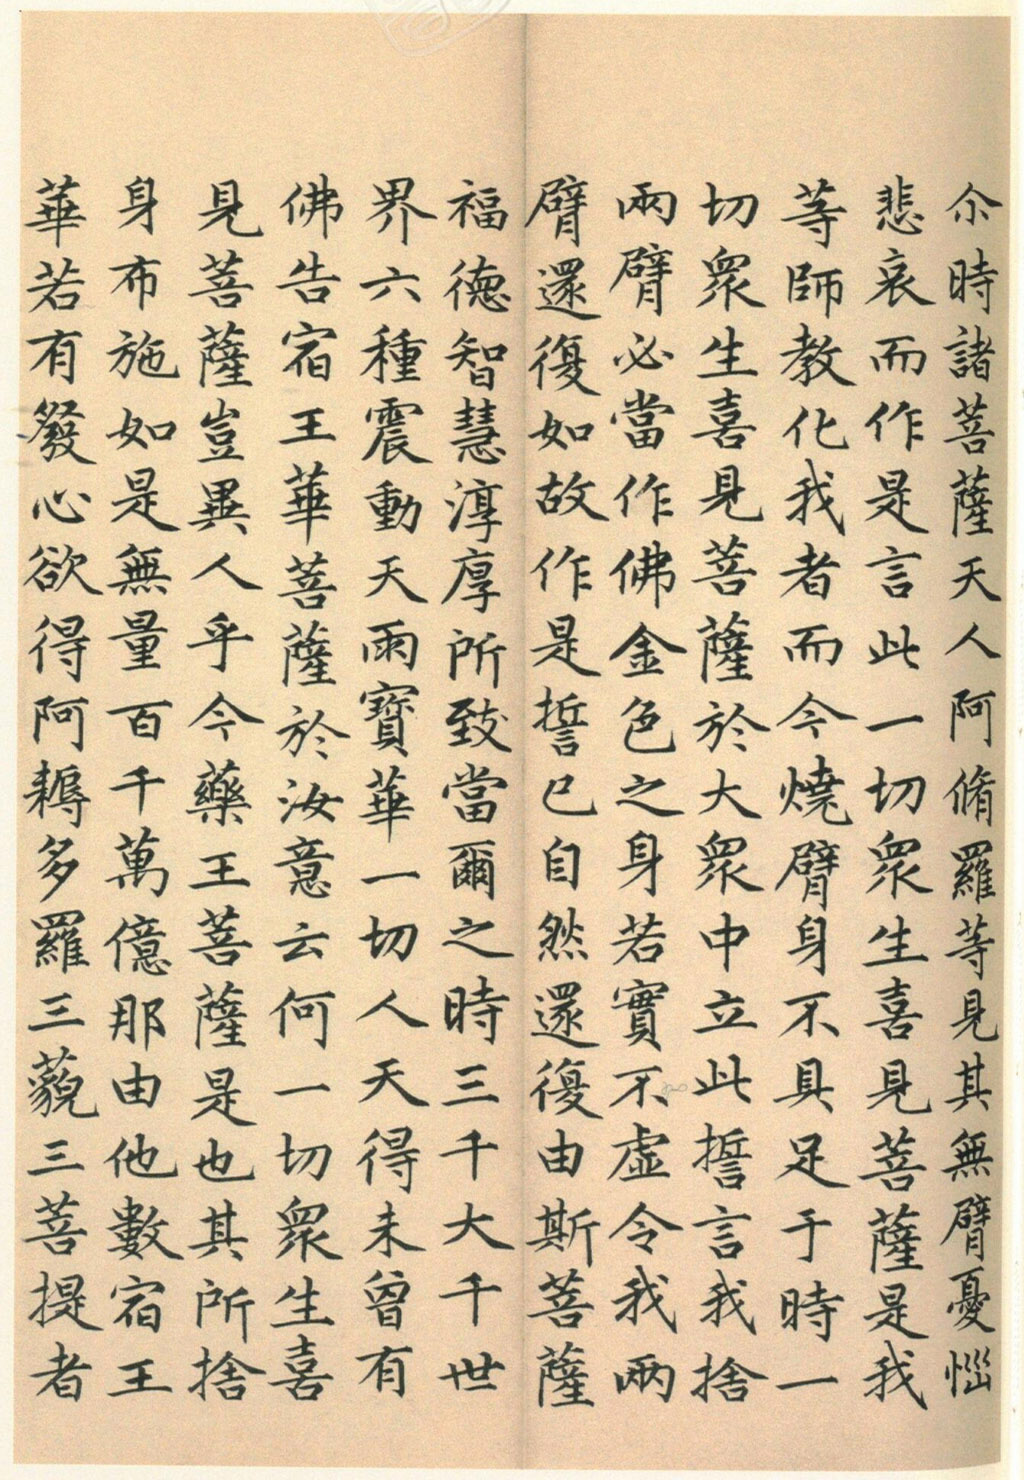 尒時諸菩薩天人阿脩羅等見其無臂憂惱
悲哀而作是言此一切衆生喜見菩薩是我
等師教化我者而今燒臂身不具足于時一
切衆生喜見菩薩於大衆中立此誓言我捨
兩臂必當作佛金色之身若實不虛令我兩
臂還復如故作是誓已自然還復由斯菩薩
福德智慧淳厚所致當爾之時三千大千世
界六種震動天雨寶華一切人天得未曾有
佛告宿王華菩薩於汝意云何一切衆生喜
見菩薩豈異人乎今藥王菩薩是也其所捨
身布施如是無量百千萬億那由他數宿王
華若有發心欲得阿耨多羅三藐三菩提者